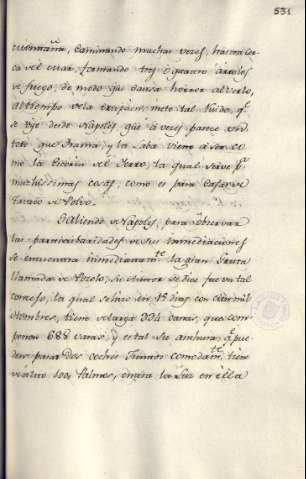 531
muchas veces, hasta cer
ca del mar, formando tres ó quatro arroyos
de fuego, de modo que causa horror al verlo,
al tiempo de la erupcion, mete tal ruido, q.e
se oye desde Napoles, que á veces parece
que brama; y la Laba viene á ser co
mo la escoria del Yerro, la qual sirve p.a
muchissimas cosas, como es para Caxas de
Tavaco de Polvo.
Saliendo de Napoles, para observar
las particularidades de sus inmediaciones
se encuentra inmediatam.te la gran Gruta
llamada de Pozolo, se dice fue un tal
la qual se hizo en 15 dias con cien mil
Hombres, tiene de larga 334 canas, que com
ponen 688 varas, y es tal su anchura, q.e pue
den pasar dos coches Juntos comodam.te tiene
de alto 100 Palmos, entra la Luz en ella